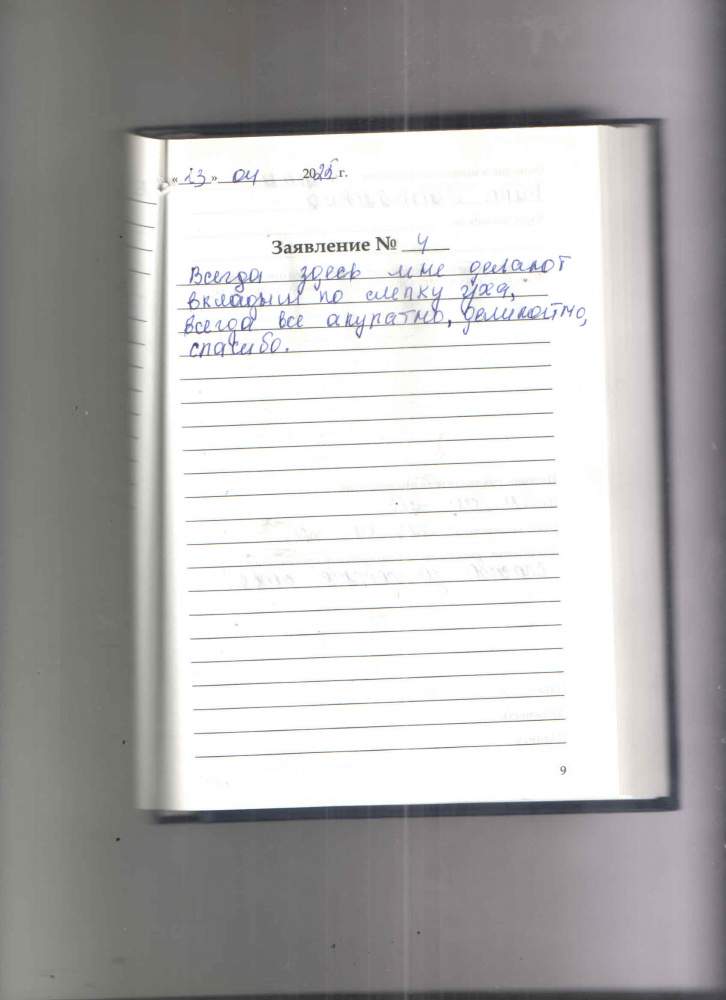 «23» 04 2025 г.
Заявление № 4
Всегда здесь мне делают
вкладыши по слепку уха,
всегда все акуратно, деликатно,
спасибо.
9